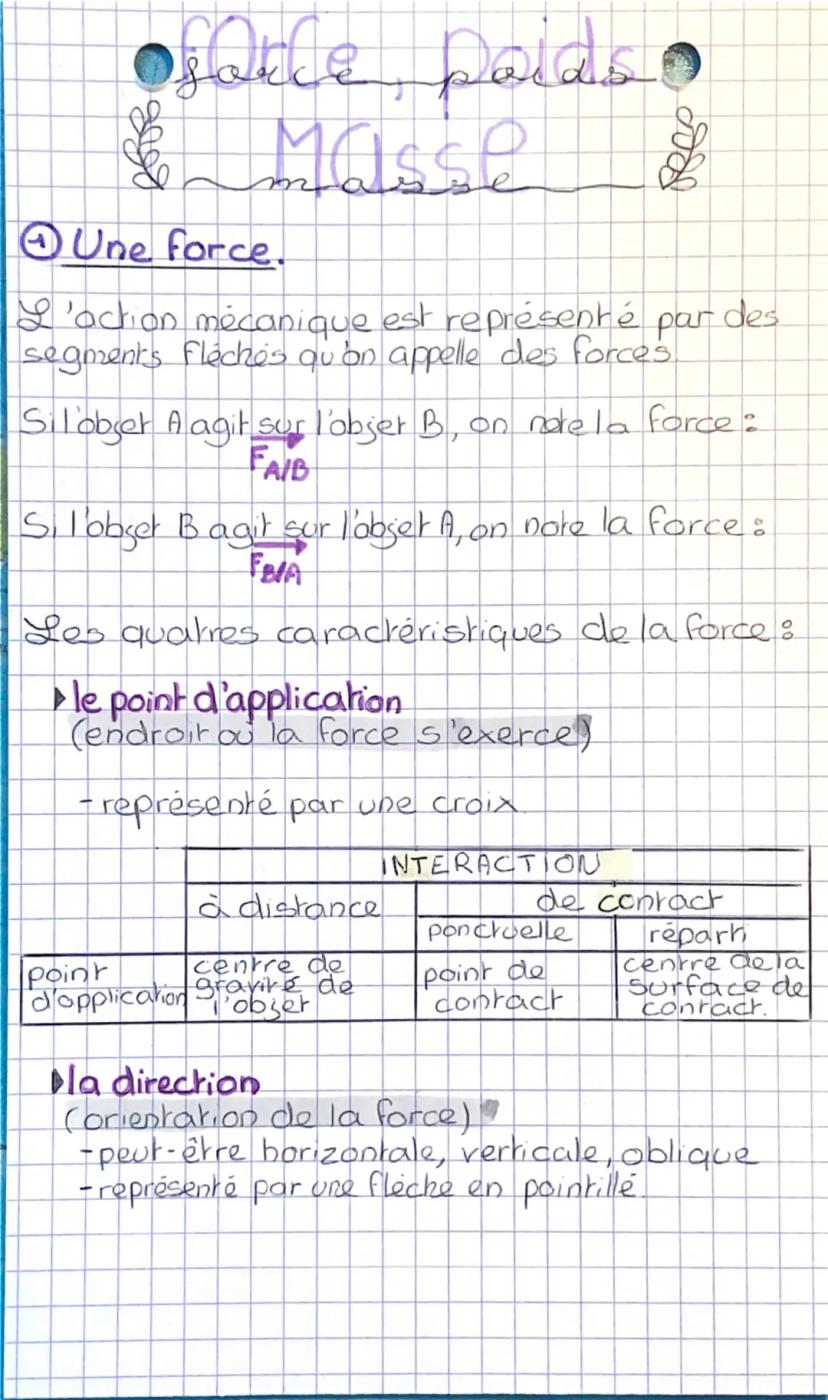 force, poids
masse
① Une force.
L'action mécanique est représenté par des
segments fléchés qu'on appelle des forces.
Si l'objet A agit sur l'objet B, on note la force :
F A/B
Si l'objet B agit sur l'objet A, on note la force :
F B/A
Les quatres caractéristiques de la force :
▸ le point d'application
(endroit où la force s'exerce)
- représenté par une croix
INTERACTION
à distance
de contact
ponctuelle
réparti
point
d'application
centre de
gravité de
l'objet
point de
contact
centre de la
surface de
contact.
▸ la direction
(orientation de la force)
- peut-être horizontale, verticale, oblique
- représenté par une flèche en pointillé.